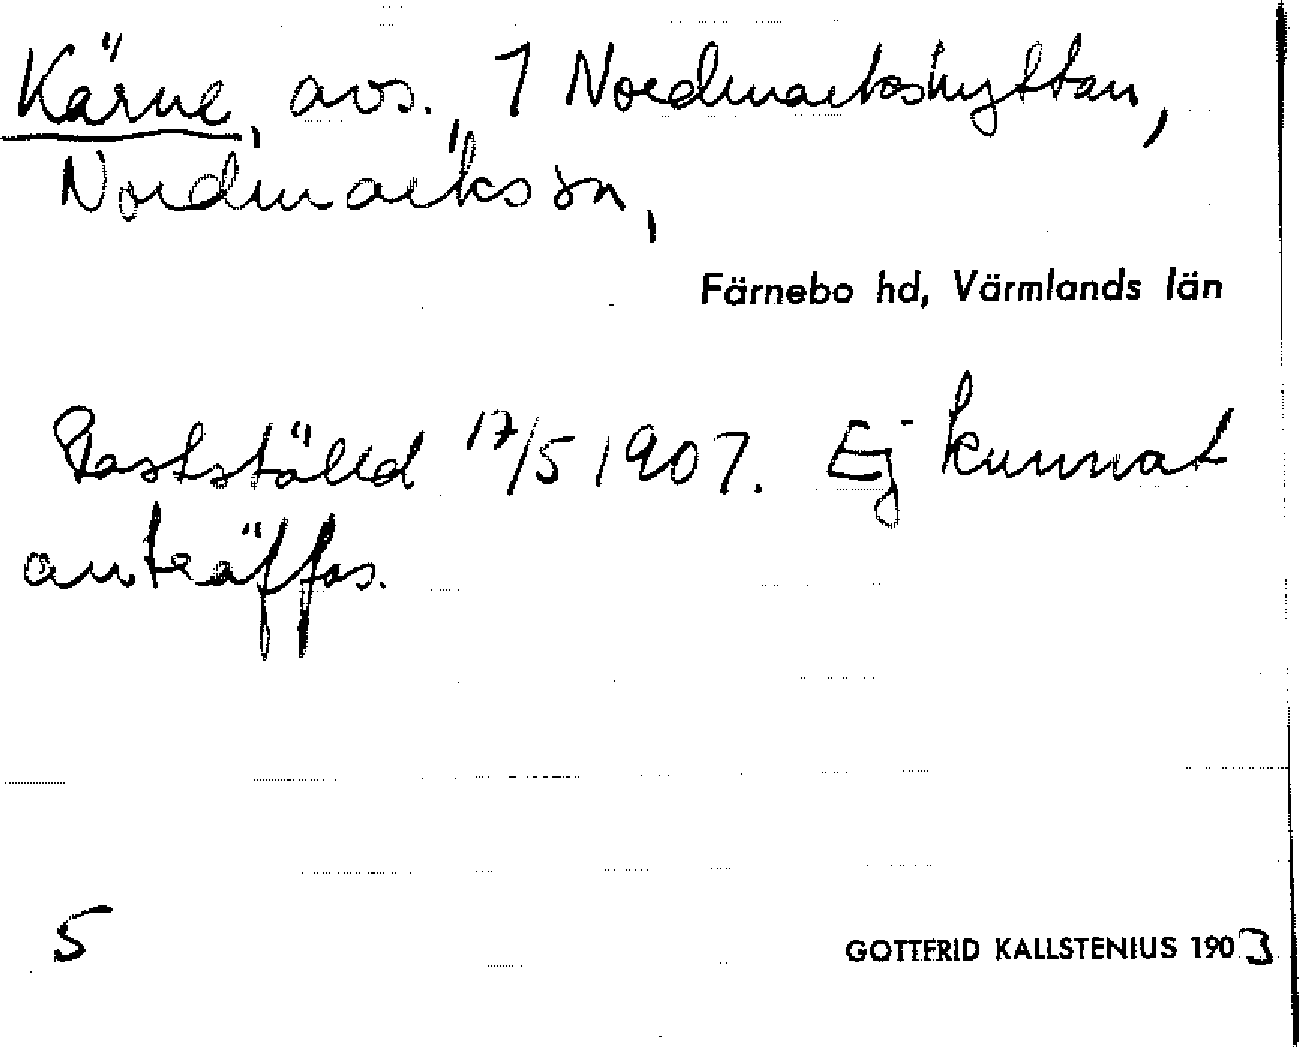 Kärne, avs., 1 Nordmarkshyttan,
Nordmarks sn,
Färnebo hd, Värmlands län
Fastställd 17/5 1907. Ej kunnat
anträffas.
5
GOTTFRID KALLSTENIUS 1903